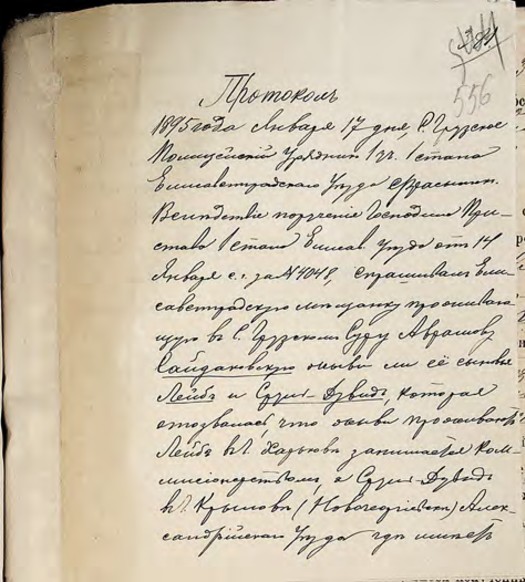 556
Протоколъ
1895 года Января 17 дня С. Грузское
Полицейскій Урядникъ 1 уч. 1 стана
Елисаветградскаго Уѣзда
Вслѣдствіе порученія Господина При-
става 1 стана Елисав. Уѣзда отъ 14
Января с. г. за № 4048, спрашивалъ Ели-
саветградскую мѣщанку проживаю-
щую въ С. Грузскомъ Суру Аврамову
Сайдаковскую живы ли её сыновья
Лейбъ и Сруль-Дувидъ, которая
отозвалась, что живы проживаютъ
Лейбъ въ г. Харьковѣ занимается ком-
миссіонерствомъ, а Сруль-Дувидъ
въ г. Крыловѣ (Новогеоргіевскъ) Алек-
сандрійскаго Уѣзда гдѣ имѣетъ